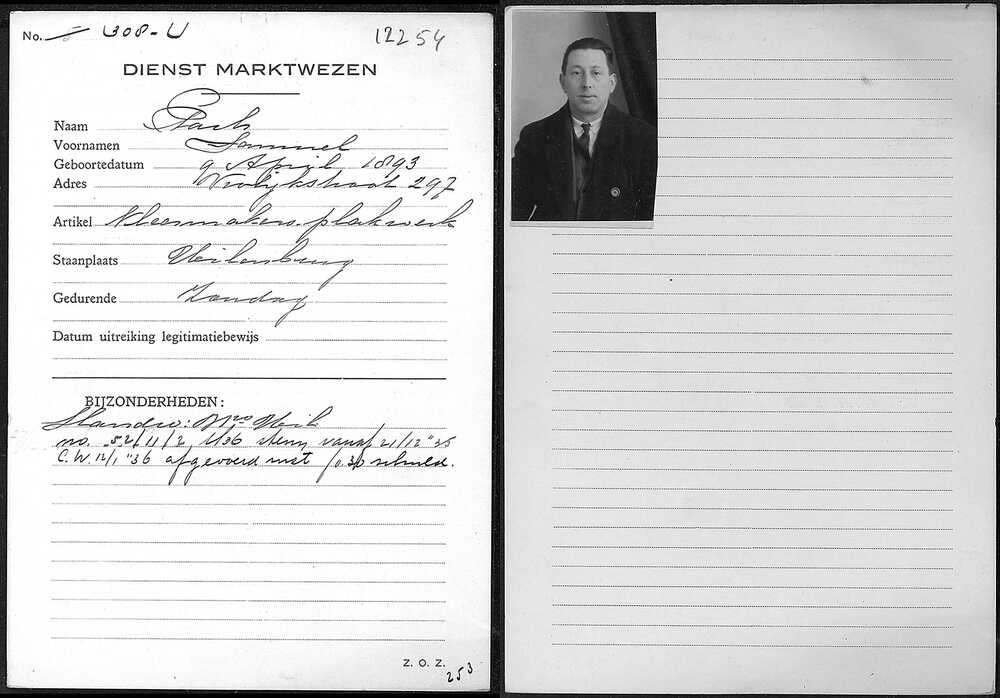 No. 308-U 12254
DIENST MARKTWEZEN
Naam
Voornamen Samuel
Geboortedatum 9 April 1893
Adres 297
Artikel Kleermakers plakwerk
Staanplaats Uilenburg
Gedurende Zondag
Datum uitreiking legitimatiebewijs
BIJZONDERHEDEN:
no. 52/11/2 1936 vanaf 21/12 "35
C.W. 12/1 "36 afgevoerd met f 0.30 schuld.
Z. O. Z.
253